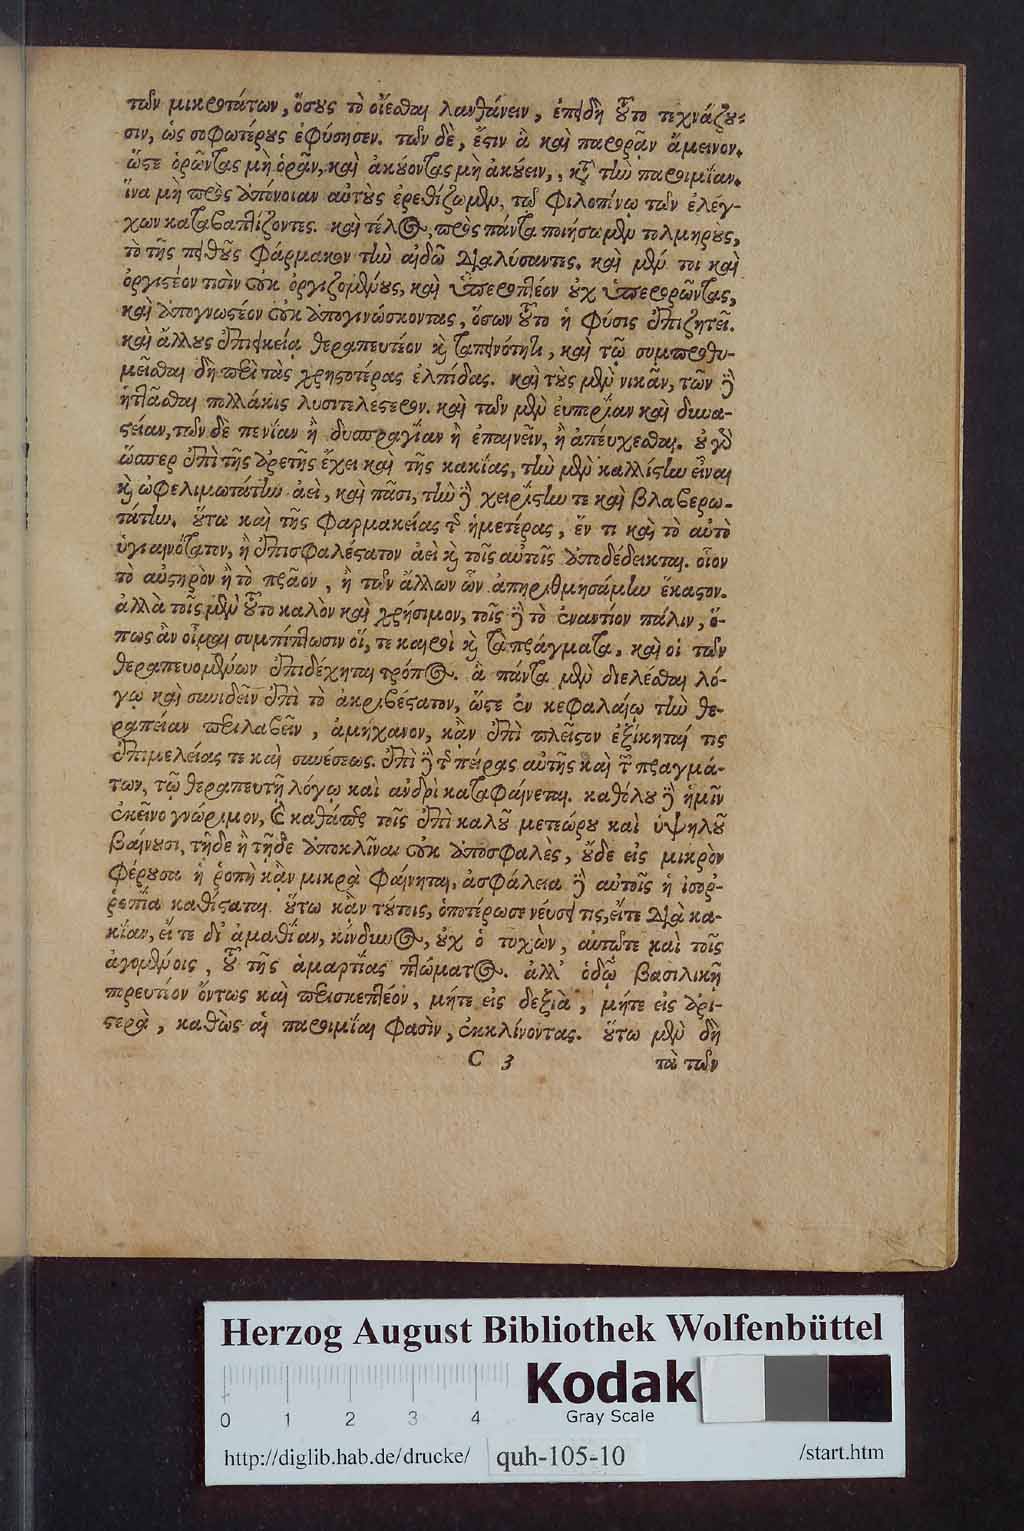 τῶν μικροτάτων, ὅσους τὸ οἴεσθαι λανθάνειν, ἐπειδὴ τοῦτο τεχνάζου-
σιν, ὡς σοφωτέρους ἐφύσησεν. τῶν δὲ, ἔστιν ἃ καὶ παρορᾷν ἄμεινον.
ὥστε ὁρῶντας μὴ ὁρᾷν, καὶ ἀκούοντας μὴ ἀκούειν, κατὰ τὴν παροιμίαν.
ἵνα μὴ πρὸς ἀπόνοιαν αὐτοὺς ἐρεθίζωμεν, τῷ φιλοπίνῳ τῶν ἐλέγ-
χων καταβαπτίζοντες. καὶ τέλος, πρὸς πάντα ποιήσωμεν τολμηροὺς,
τὸ τῆς πειθοῦς φάρμακον τὴν αἰδῶ διαλύσαντες. καὶ μέν τοι καὶ
ὀργιστέον τισὶν οὐκ ὀργιζομένους, καὶ ὑπεροπτέον οὐχ ὑπερορῶντας,
καὶ ἀπογνωστέον οὐκ ἀπογινώσκοντας, ὅσων τοῦτο ἡ φύσις ἐπιζητεῖ.
καὶ ἄλλους ἐπιεικείᾳ θεραπευτέον καὶ ταπεινότητι, καὶ τῷ συμπροθυ-
μεῖσθαι δὴ περὶ τὰς χρηστοτέρας ἐλπίδας. καὶ τοὺς μὲν νικᾷν, τῶν δὲ
ἡττᾶσθαι πολλάκις λυσιτελέστερον. καὶ τῶν μὲν εὐπορίαν καὶ δυνα-
στείαν, τῶν δὲ πενίαν ἢ δυσπραγίαν ἢ ἐπαινεῖν, ἢ ἀπεύχεσθαι. οὐ γὰρ
ὥσπερ ἐπὶ τῆς ἀρετῆς ἔχει καὶ τῆς κακίας, τὴν μὲν καλλίστην εἶναι
καὶ ὠφελιμωτάτην ἀεὶ, καὶ πᾶσι, τὴν δὲ χειρίστην τε καὶ βλαβερω-
τάτην. οὕτω καὶ τῆς φαρμακείας τῆς ἡμετέρας, ἕν τι καὶ τὸ αὐτὸ
ὑγιεινότατον, ἢ ἐπισφαλέστατον ἀεὶ καὶ τοῖς αὐτοῖς ἀποδέδεικται. οἷον
τὸ αὐστηρὸν ἢ τὸ πρᾶον, ἢ τῶν ἄλλων ὧν ἀπηριθμησάμην ἕκαστον.
ἀλλὰ τοῖς μὲν τοῦτο καλὸν καὶ χρήσιμον, τοῖς δὲ τὸ ἐναντίον πάλιν, ὅ-
πως ἂν οἶμαι συμπίπτωσιν οἵ, τε καιροὶ καὶ τὰ πράγματα, καὶ οἱ τῶν
θεραπευομένων ἐπιδέχηται τρόπος. ἃ πάντα μὲν διελέσθαι λό-
γῳ καὶ συνιδεῖν ἐπὶ τὸ ἀκριβέστατον, ὥστε ἐν κεφαλαίῳ τὴν θε-
ραπείαν περιλαβεῖν, ἀμήχανον, κἂν ἐπὶ πλεῖστον ἐξίκηταί τις
ἐπιμελείας τε καὶ συνέσεως. ἐπὶ δὲ τῆς πείρας αὐτῆς καὶ τῶν πραγμά-
των, τῷ θεραπευτῇ λόγῳ καὶ ἀνδρὶ καταφαίνεται. καθόλου δὲ ἡμῖν
ἐκεῖνο γνώριμον, ὅτι καθάπερ τοῖς ἐπὶ καλοῦ μετεώρου καὶ ὑψηλοῦ
βαίνουσι, τῇδε ἢ τῇδε ἀποκλῖναι οὐκ ἀποσφαλὲς, οὐδε εἰς μικρὸν
φέρουσα ἡ ῥοπὴ κἂν μικρὰ φαίνηται, ἀσφάλεια δὲ αὐτοῖς ἡ ἰσοῤ-
ῥοπία καθίσταται. οὕτω κἂν τούτοις, ὁποτέρωσε νεύσει τις, εἴτε διὰ κα-
κίαν, εἴ τε δι' ἀμαθίαν, κίνδυνος, οὐχ ὁ τυχὼν, αὐτῷτε καὶ τοῖς
ἀγομένοις, τοῦ τῆς ἁμαρτίας πτώματος. ἀλλ' ὁδῷ βασιλικῇ
πορευτέον ὄντως καὶ περισκεπτέον, μήτε εἰς δεξιὰ, μήτε εἰς ἀρι-
στερὰ, καθὼς αἱ παροιμίαι φασὶν, ἐκκλίνοντας. οὕτω μὲν δὴ
C 3 τὰ τῶν
Herzog August Bibliothek Wolfenbüttel
Kodak
Gray Scale
0 1 2 3 4
http://diglib.hab.de/drucke/ quh-105-10 /start.htm